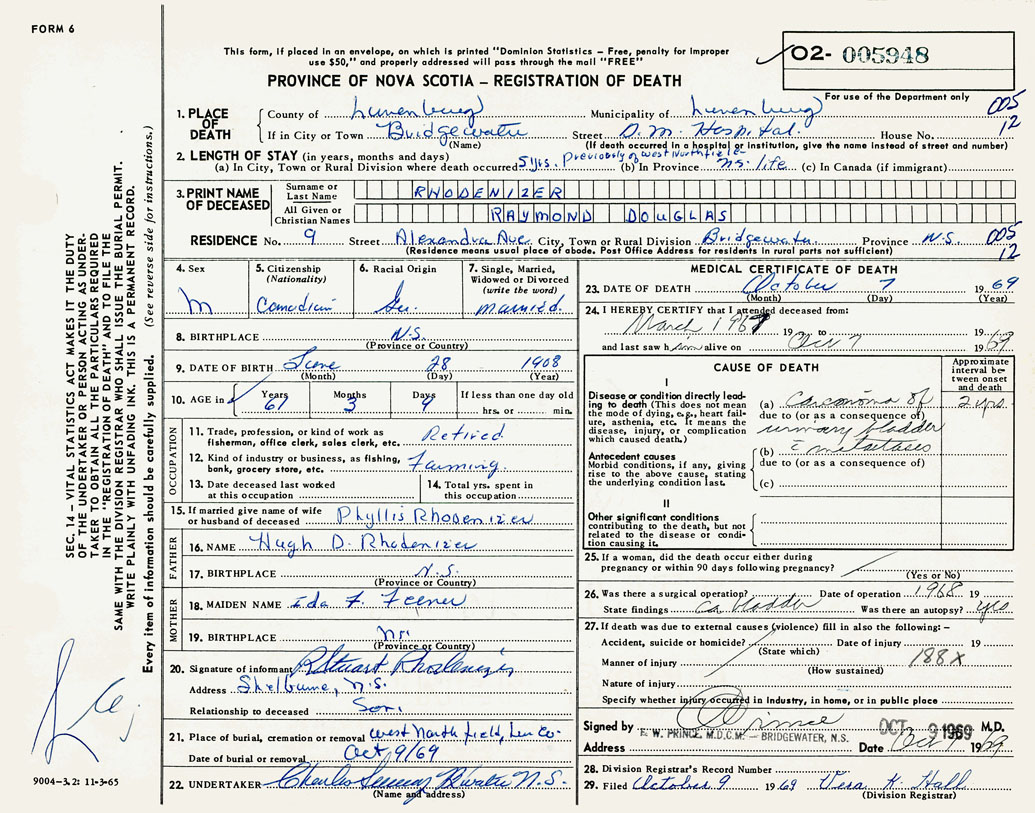 FORM 6
This form, if placed in an envelope, on which is printed "Dominion Statistics – Free, penalty for improper
use $50," and properly addressed will pass through the mail "FREE"
PROVINCE OF NOVA SCOTIA – REGISTRATION OF DEATH
02- 005948
For use of the Department only
005
12
1. PLACE OF DEATH
County of Lunenburg Municipality of Lunenburg
If in City or Town Bridgewater Street D. M. Hospital House No.
(Name) (If death occurred in a hospital or institution, give the name instead of street and number)
2. LENGTH OF STAY (in years, months and days)
(a) In City, Town or Rural Division where death occurred 5 yrs. Previously of West Northfield (b) In Province N.S. life (c) In Canada (if immigrant)
3. PRINT NAME OF DECEASED
Surname or Last Name RHODENIZER
All Given or Christian Names RAYMOND DOUGLAS
RESIDENCE No. 9 Street Alexandra Ave City, Town or Rural Division Bridgewater Province N.S. 005
12
(Residence means usual place of abode. Post Office Address for residents in rural parts not sufficient)
4. Sex
M
5. Citizenship (Nationality)
Canadian
6. Racial Origin
Ger.
7. Single, Married, Widowed or Divorced (write the word)
married
8. BIRTHPLACE N.S.
(Province or Country)
9. DATE OF BIRTH June 28 1908
(Month) (Day) (Year)
10. AGE in Years Months Days If less than one day old
61 3 9 hrs. or min.
OCCUPATION
11. Trade, profession, or kind of work as fisherman, office clerk, sales clerk, etc. Retired
12. Kind of industry or business, as fishing, bank, grocery store, etc. Farming
13. Date deceased last worked at this occupation
14. Total yrs. spent in this occupation
15. If married give name of wife or husband of deceased Phyllis Rhodenizer
FATHER
16. NAME Hugh D. Rhodenizer
17. BIRTHPLACE N.S.
(Province or Country)
MOTHER
18. MAIDEN NAME Ida F. Feener
19. BIRTHPLACE
(Province or Country)
20. Signature of informant R Stuart Rhodenizer
Address Shelburne, N.S.
Relationship to deceased Son.
21. Place of burial, cremation or removal West Northfield, Lun Co.
Date of burial or removal Oct 9/69
22. UNDERTAKER Charles N.S.
(Name and address)
MEDICAL CERTIFICATE OF DEATH
23. DATE OF DEATH October 7 1969
(Month) (Day) (Year)
24. I HEREBY CERTIFY that I attended deceased from:
March 1967 19 to
and last saw him alive on Oct 7 1969
CAUSE OF DEATH
Approximate interval between onset and death
I
Disease or condition directly leading to death (This does not mean the mode of dying, e.g., heart failure, asthenia, etc. It means the disease, injury, or complication which caused death.)
(a) Carcinoma of 2 yrs.
due to (or as a consequence of)
urinary bladder
Antecedent causes
Morbid conditions, if any, giving rise to the above cause, stating the underlying condition last.
(b) c̄ metastases
due to (or as a consequence of)
(c)
II
Other significant conditions
contributing to the death, but not related to the disease or condition causing it.
25. If a woman, did the death occur either during
pregnancy or within 90 days following pregnancy?
(Yes or No)
26. Was there a surgical operation? Date of operation 1968 19
State findings Ca bladder Was there an autopsy? yes
27. If death was due to external causes (violence) fill in also the following: –
Accident, suicide or homicide? Date of injury 19
(State which)
Manner of injury 188X
(How sustained)
Nature of injury
Specify whether injury occurred in industry, in home, or in public place
Signed by Prince M.D.
E. W. PRINCE, M.D.C.M. – BRIDGEWATER, N.S.
OCT 9 1969
Address Date Oct 1969
28. Division Registrar's Record Number
29. Filed October 9 1969 Vera K. Hall
(Division Registrar)
SEC. 14 – VITAL STATISTICS ACT MAKES IT THE DUTY
OF THE UNDERTAKER OR PERSON ACTING AS UNDER-
TAKER TO OBTAIN ALL THE PARTICULARS REQUIRED
IN THE "REGISTRATION OF DEATH" AND TO FILE THE
SAME WITH THE DIVISION REGISTRAR WHO SHALL ISSUE THE BURIAL PERMIT.
WRITE PLAINLY WITH UNFADING INK. THIS IS A PERMANENT RECORD.
Every item of information should be carefully supplied. (See reverse side for instructions.)
9004-3.2: 11-3-65